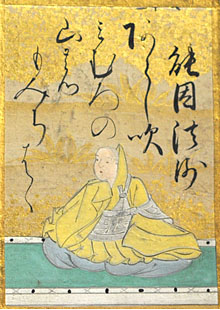 能因法師
あらし吹
みむろの
山の
もみちはゝ